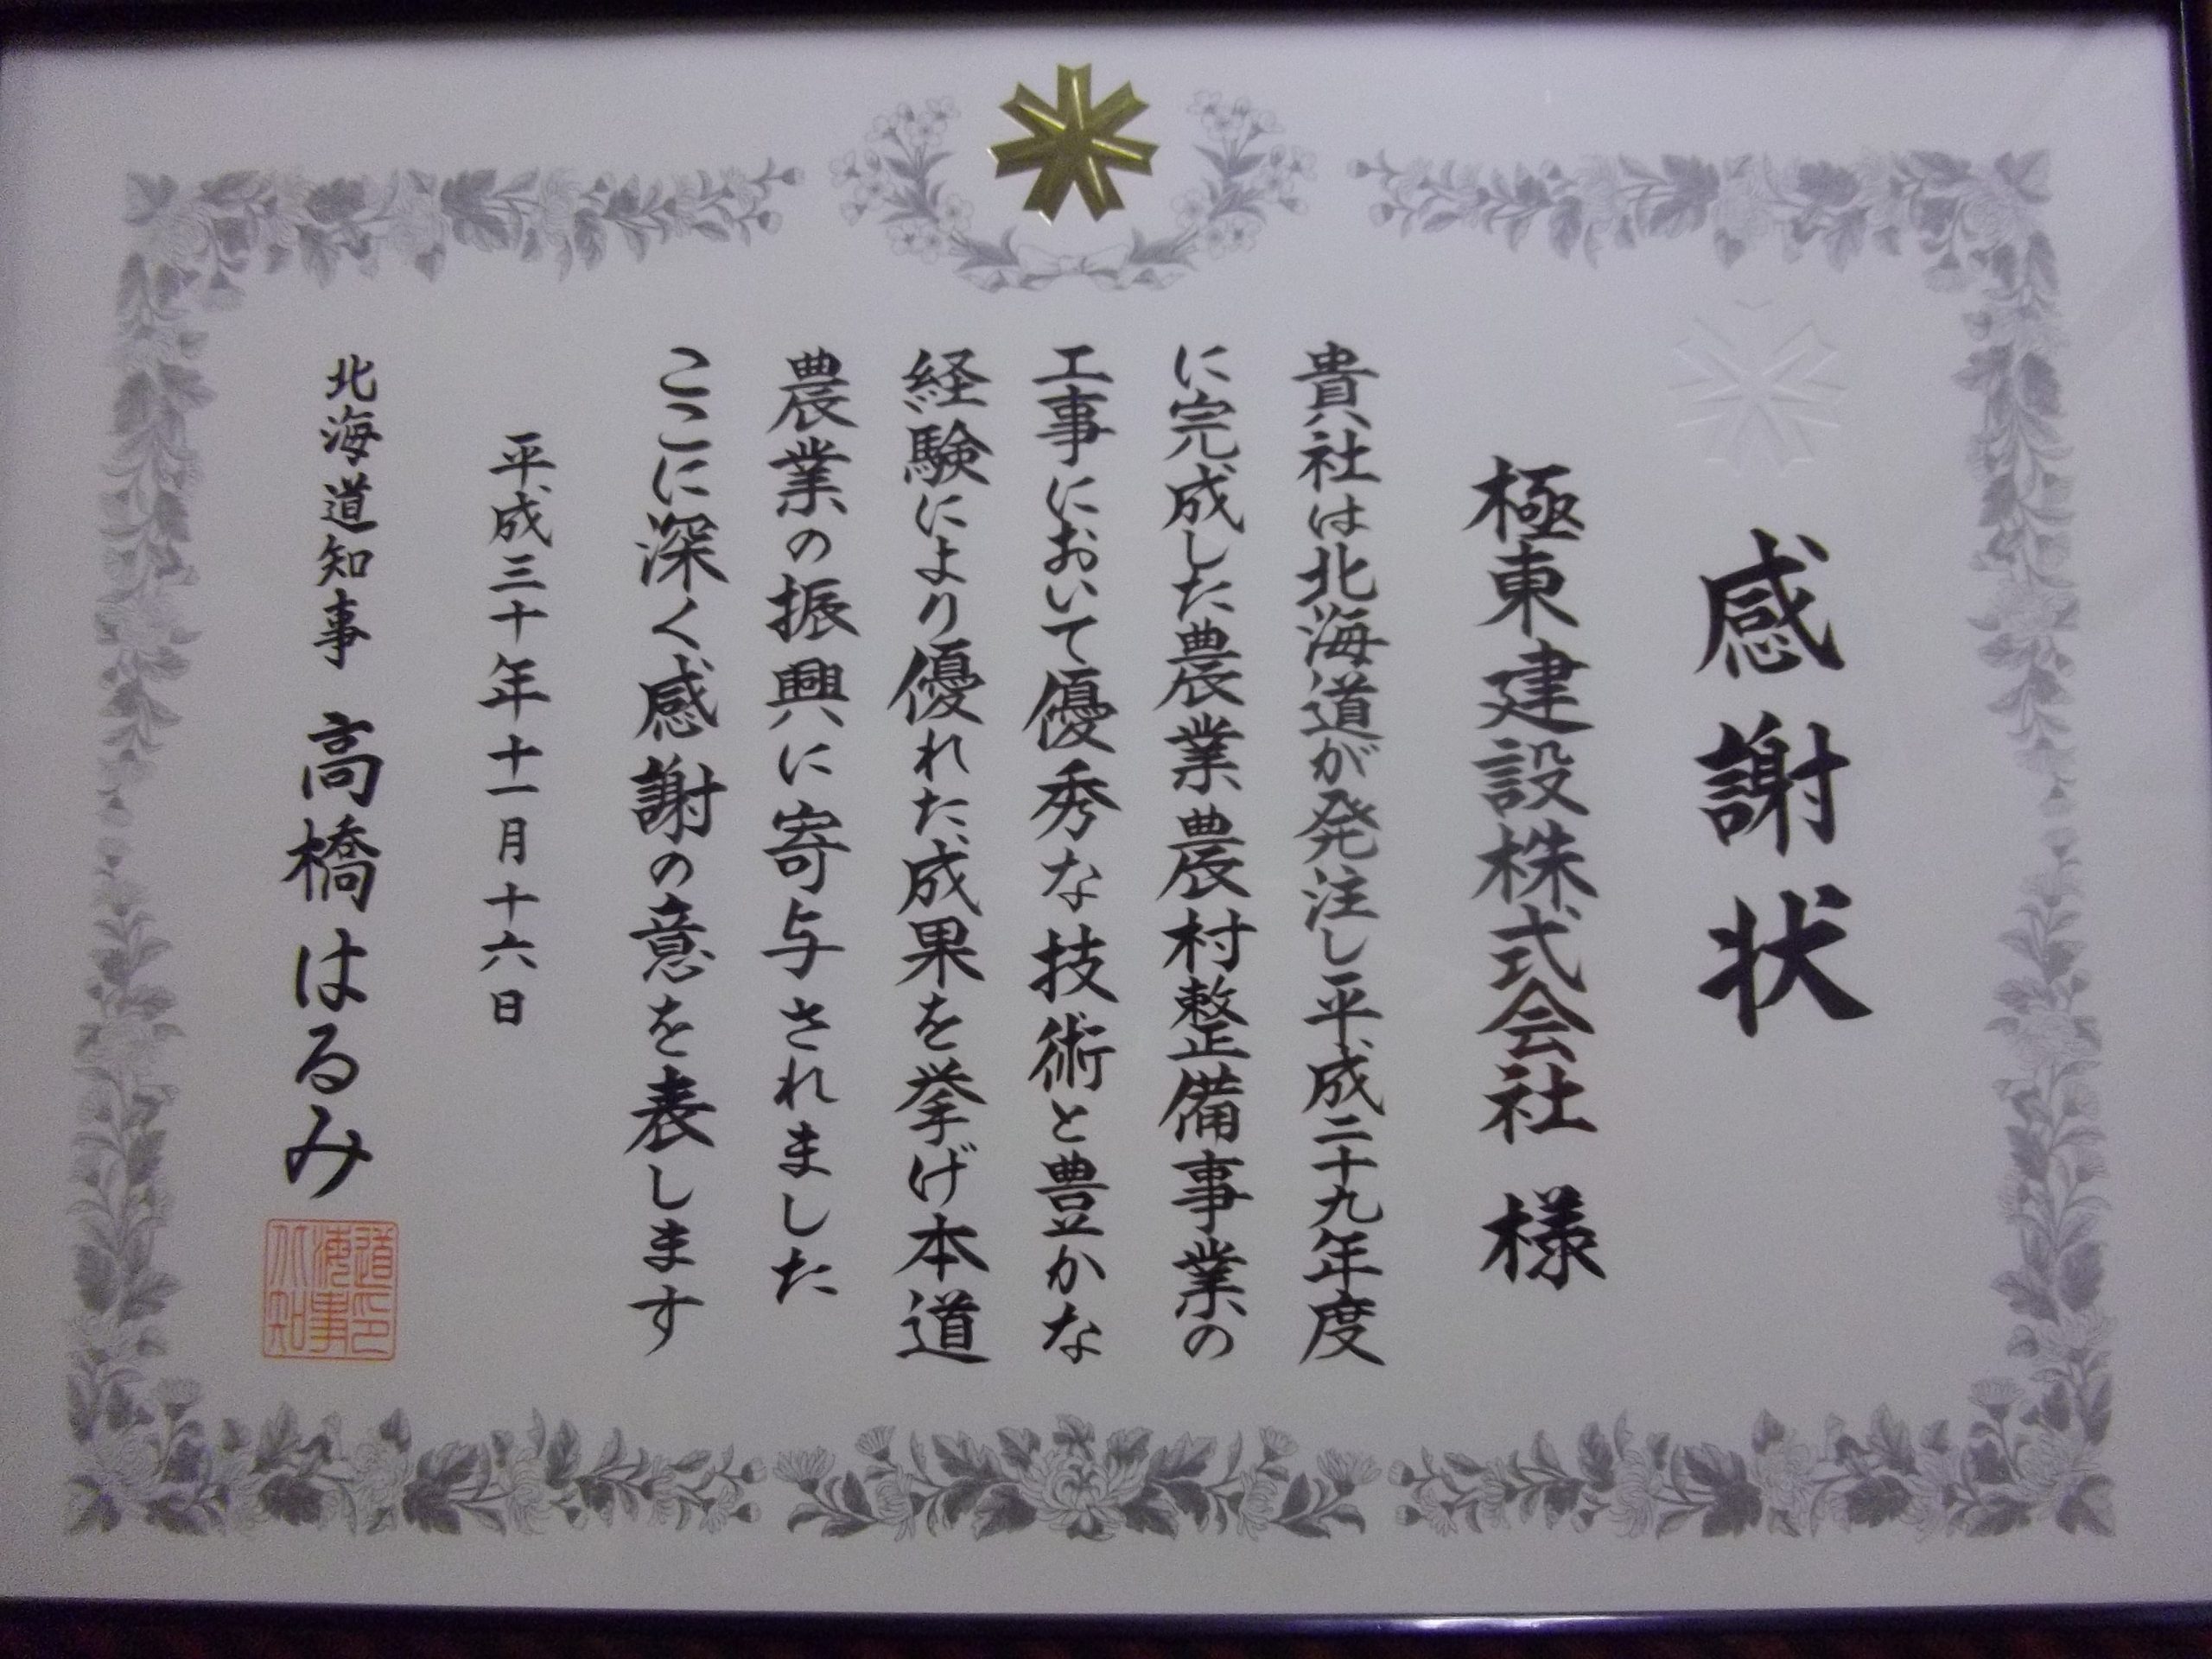 感謝状
極東建設株式会社 様
貴社は北海道が発注し平成二十九年度
に完成した農業農村整備事業の
工事において優秀な技術と豊かな
経験により優れた成果を挙げ本道
農業の振興に寄与されました
ここに深く感謝の意を表します
平成三十年十一月十六日
北海道知事 高橋はるみ
北海道知事印